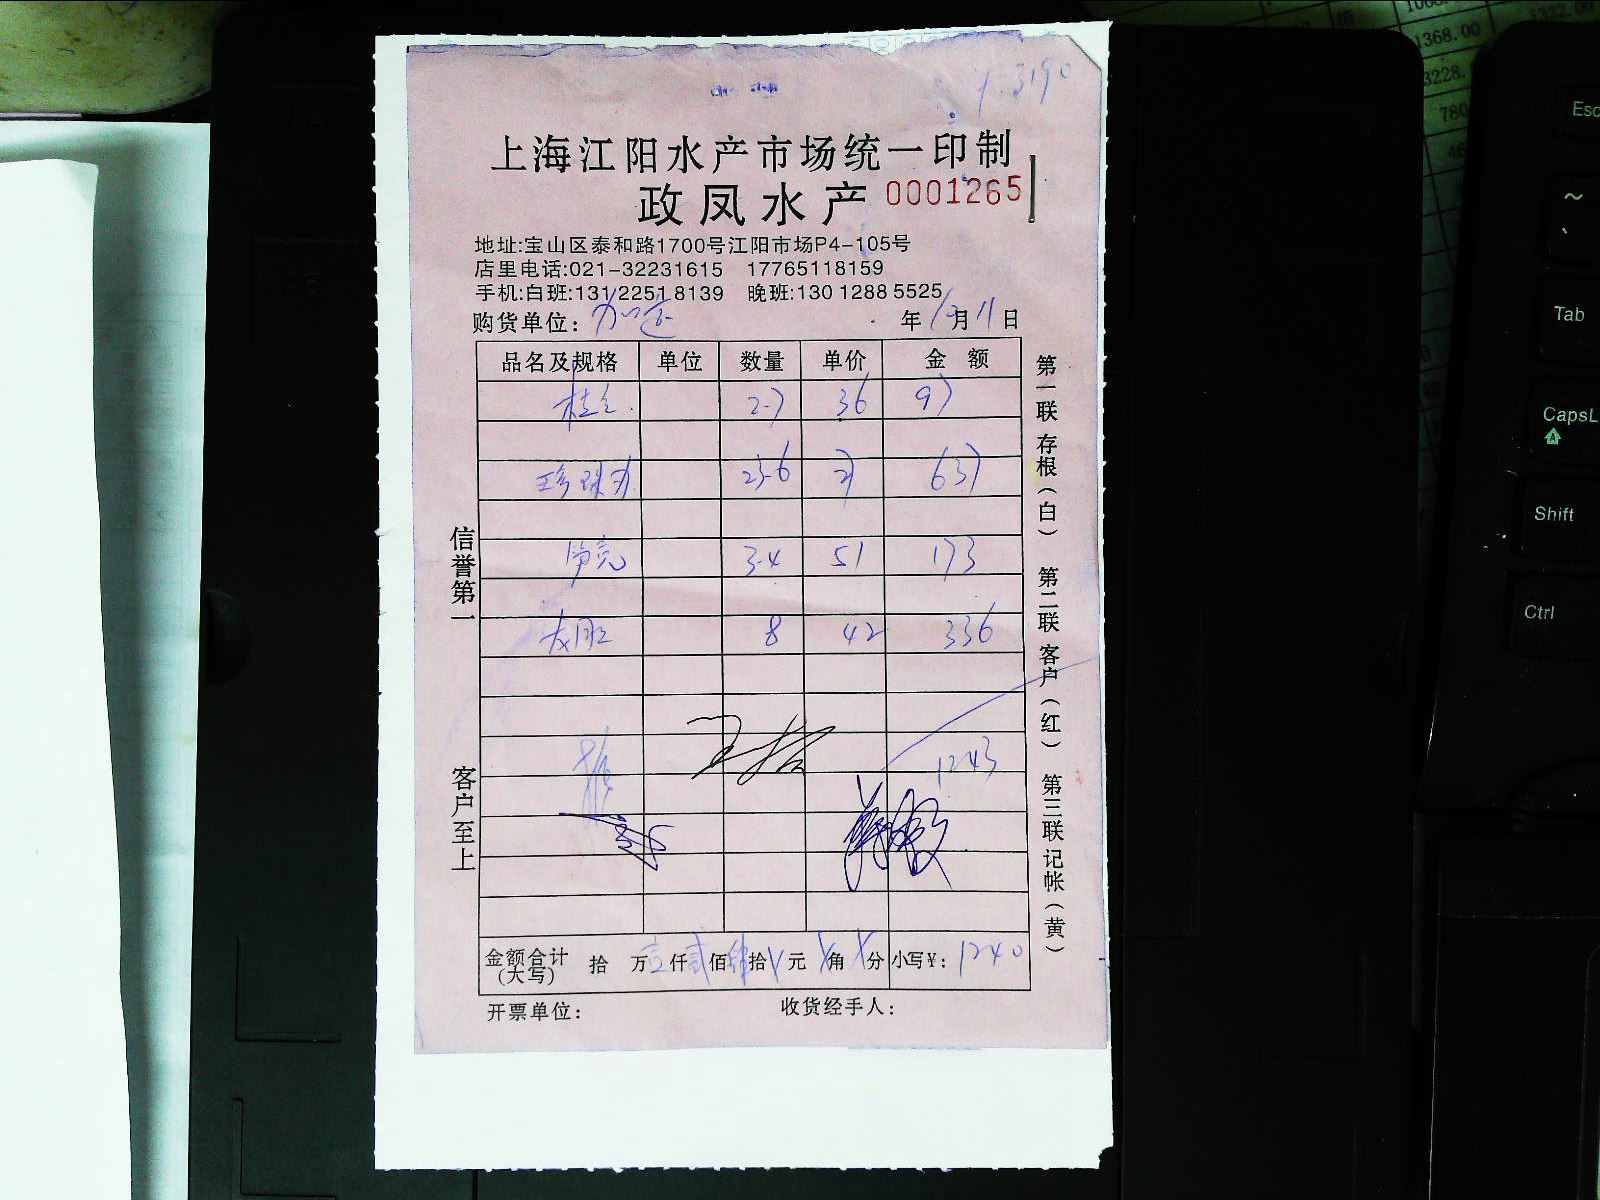 3190
上海江阳水产市场统一印制
政凤水产 0001265
地址:宝山区泰和路1700号江阳市场P4-105号
店里电话:021-32231615 17765118159
手机:白班:13122518139 晚班:13012885525
购货单位: 年 月 11 日
品名及规格 单位 数量 单价 金 额
2-7 36 97
珍珠 23-6 27 637
笋壳 3-4 51 173
龙胆 8 42 336
1243
金额合计(大写) 拾 万壹仟贰佰肆拾 元 角 分 小写¥: 1240
开票单位: 收货经手人:
信誉第一 客户至上
第一联 存根(白) 第二联 客户(红) 第三联 记帐(黄)
1368.00
3228.
780
1332.00
Esc
~
Tab
CapsL
A
Shift
Ctrl